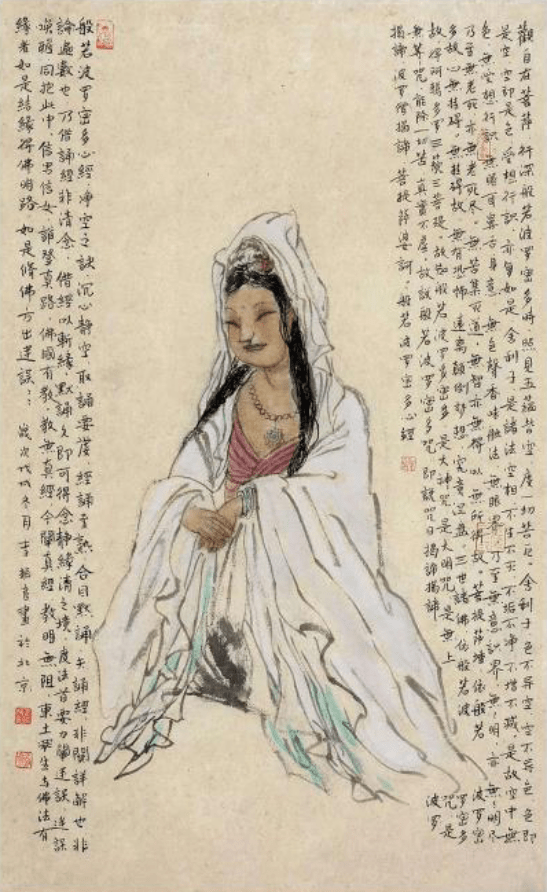 觀自在菩薩行深般若波罗密多時照見五蘊皆空度一切苦厄舍利子色不異空空不異色色即
是空空即是色受想行識亦復如是舍利子是諸法空相不生不灭不垢不净不增不减是故空中無
色無受想行識無眼耳鼻舌身意無色聲香味触法無眼界乃至無意識界無無明亦無無明尽
乃至無老死亦無老死尽無苦集灭道無智亦無得以無所得故菩提萨埵依般若波罗密
多故心無挂碍無挂碍故無有恐怖遠離顛倒夢想究竟涅盘三世諸佛依般若波罗密多
故得阿耨多罗三藐三菩提故知般若波罗密多是大神咒是大明咒是無上咒是
無等咒能除一切苦真實不虚故説般若波罗密多咒即説咒曰揭諦揭諦波罗
揭諦波罗僧揭諦菩提萨婆訶般若波罗密多心經
般若波罗密多心經净空之訣沉心静空取誦要處經誦至熟合目默誦矢誦經非閱詳解也非
論遍數也乃借誦經非清念借經以斬緣默誦久即可得念静緣清之境度法首要勿闡迷誤迷誤
喚醒同抱此中信男信女誰擊真路佛國有教教無真經今闡真經教明無阻東土众生与佛法有
緣者如是結緣得佛明路如是修佛方出迷誤
歲次戊戌冬月李畫於北京